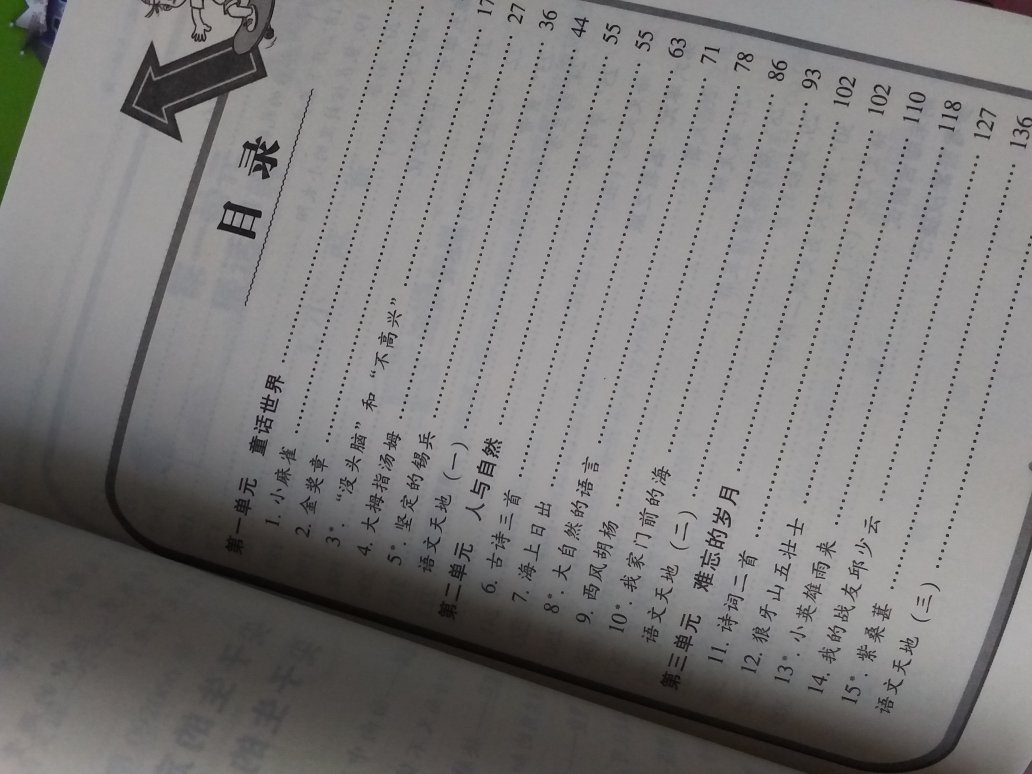 目录
第一单元 童话世界
1. 小麻雀
2. 金奖章
3*. “没头脑”和“不高兴” 17
4. 大拇指汤姆 27
5*. 坚定的锡兵 36
语文天地（一） 44
第二单元 人与自然 55
6. 古诗三首 55
7. 海上日出 63
8*. 大自然的语言 71
9. 西风胡杨 78
10*. 我家门前的海 86
语文天地（二） 93
第三单元 难忘的岁月 102
11. 诗词二首 102
12. 狼牙山五壮士 110
13*. 小英雄雨来 118
14. 我的战友邱少云 127
15*. 紫桑葚 136
语文天地（三）